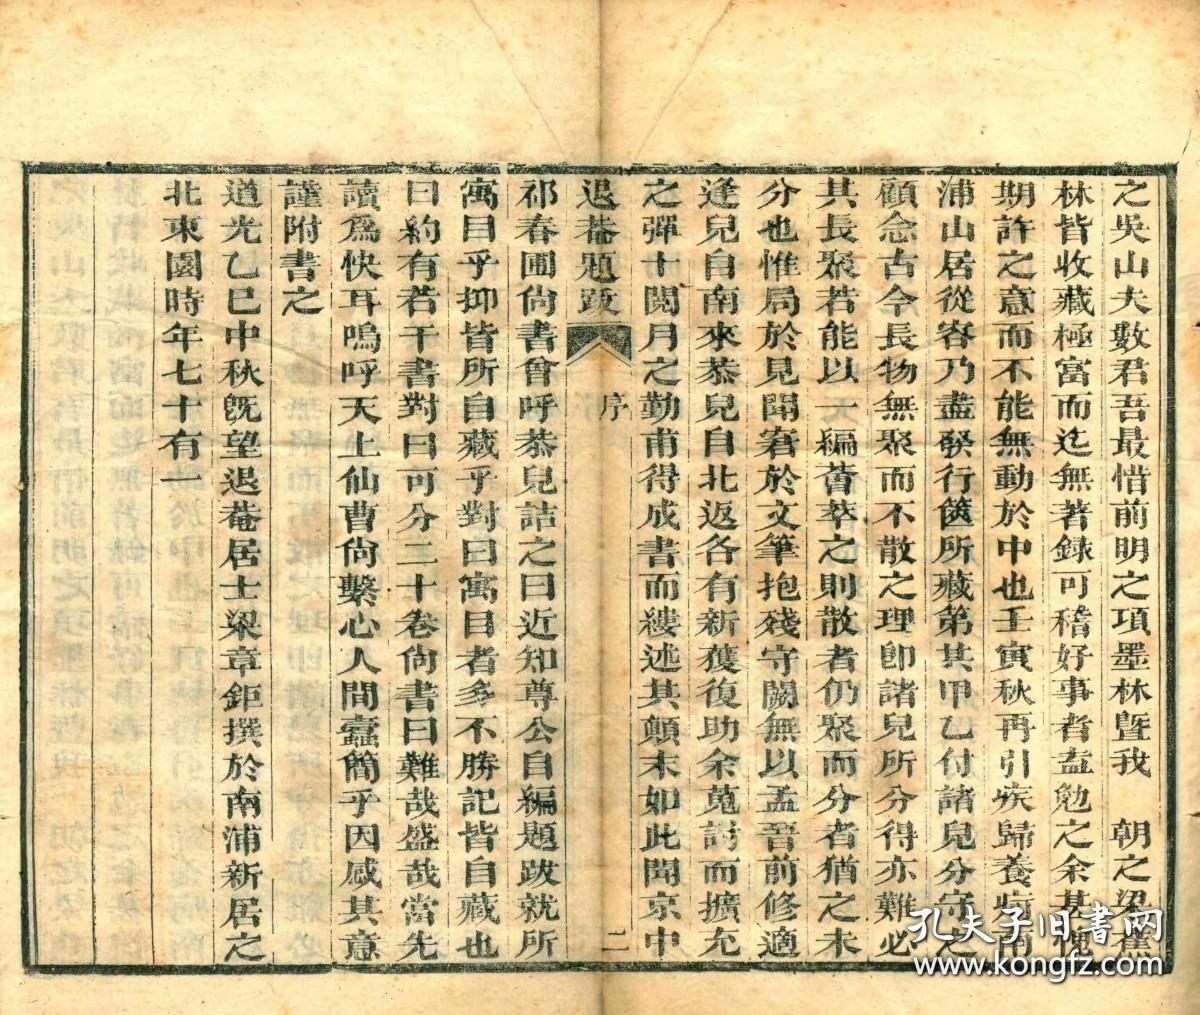 之吳山夫數君吾最惜前明之項墨林曁我　朝之梁蕉
林皆收藏極富而迄無著錄可稽好事者盍勉之余甚愧
期許之意而不能無動於中也壬寅秋再引疾歸養疴南
浦山居從容乃盡發行篋所藏第其甲乙付諸兒分守之
顧念古今長物無聚而不散之理卽諸兒所分得亦難必
其長聚若能以一編薈萃之則散者仍聚而分者猶之未
分也惟局於見聞窘於文筆抱殘守闕無以孟晉前修適
逢兒自南來恭兒自北返各有新獲復助余蒐討而擴充
之彈十閱月之勤甫得成書而縷述其顛末如此聞京中
退菴題跋
序
二
祁春圃尙書曾呼恭兒詰之曰近知尊公自編題跋就所
寓目乎抑皆所自藏乎對曰寓目者多不勝記皆自藏也
曰約有若干書對曰可分二十卷尙書曰難哉盛哉當先
讀爲快耳嗚呼天上仙曹尙繫心人間蠹簡乎因感其意
謹附書之
道光乙巳中秋旣望退菴居士梁章鉅撰於南浦新居之
北東園時年七十有一
孔夫子旧书网
www.kongfz.com